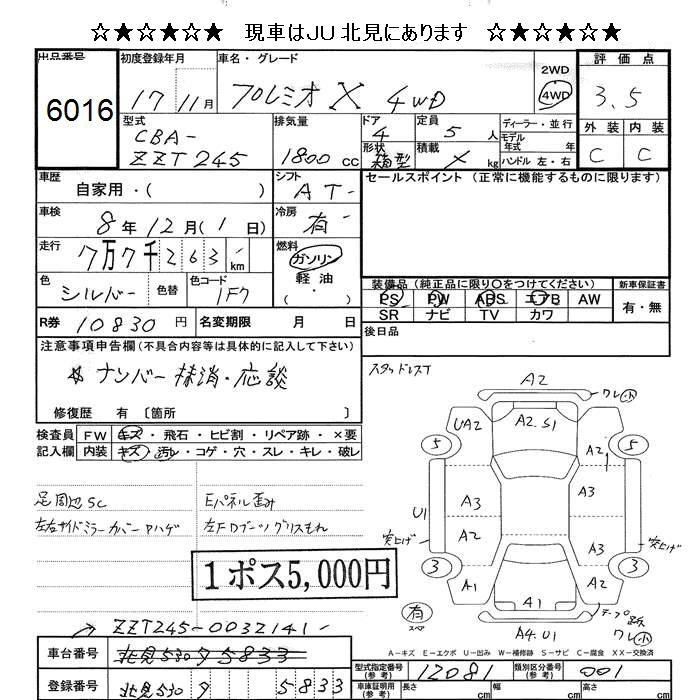 ☆★☆★☆ 現車はJU北見にあります ☆★☆★☆
出品番号 6016
初度登録年月 17年 11月
車名・グレード プレミオ X 4WD
2WD 4WD
評価点 3.5
外装 内装
C C
型式 CBA-ZZT245
排気量 1800cc
ドア 4 形状 箱型
定員 5人 積載 kg
ディーラー・並行
モデル年式 年式
ハンドル 左・右
車歴 自家用・( )
シフト AT-
セールスポイント (正常に機能するものに限ります)
車検 8年12月(1日)
冷房 有
走行 7万7千263km
燃料 ガソリン 軽油・
色 シルバー 色替 色コード 1F7
装備品 (純正品に限り〇をつけてください) 新車保証書
PS PW ABS エアB AW 有・無
SR ナビ TV カワ
R券 10830円 名変期限 月 日
後日品
注意事項申告欄 (不具合内容等は具体的に記入して下さい)
ナンバー抹消・応談
修復歴 有 〔箇所 〕
検査員記入欄 FW キズ・飛石・ヒビ割・リペア跡・×要
内装 キズ・汚レ・コゲ・穴・スレ・キレ・破レ
スタッドレスT
A2
ワレ小
UA2 A2.S1 A2
5 5
A3 A3
U1 A2 A3
突上げ 突上げ
3 3
A1 A1 A2
有 スペア
A4.U1
ワレ小
足周辺SC Eパネル歪み
左右サイドミラーカバーAハゲ 左FDブーツグリスもれ
1ポス5,000円
ZZT245-0032141-
A-キズ E-エクボ U-凹み W-補修跡 S-サビ C-腐食 XX-交換済
車台番号 北見530タ5833
登録番号 北見530タ 5833
型式指定番号 (参考) 12081 類別区分番号 (参考) 001
車庫証明用 (参考) 長さ cm 幅 cm 高さ cm